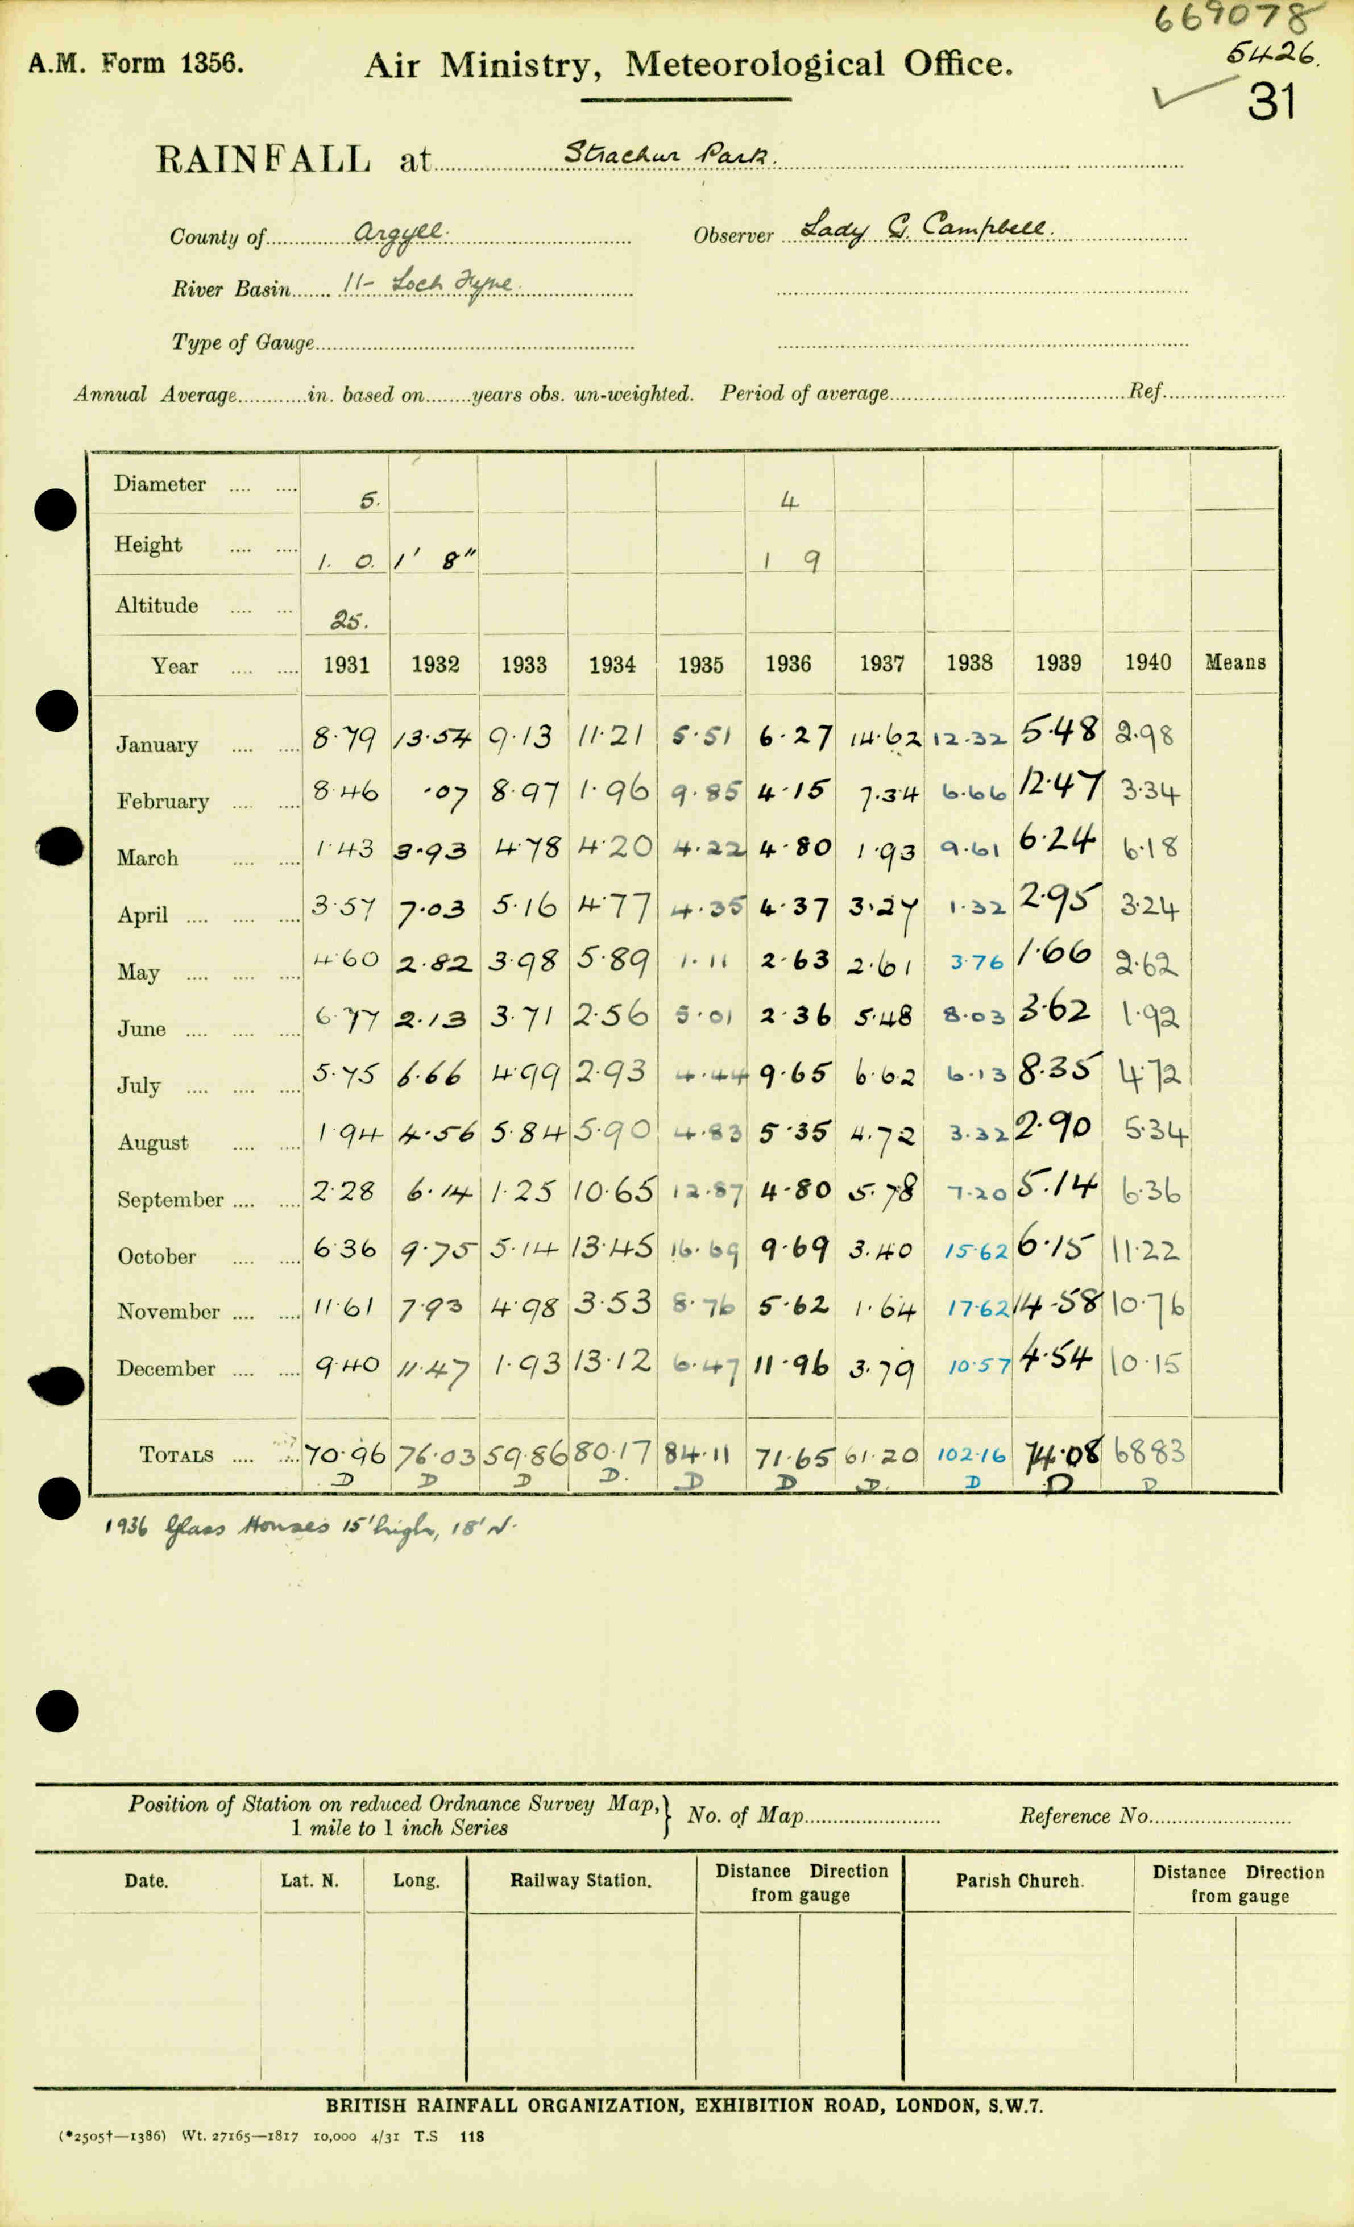 669078
A.M. Form 1356. Air Ministry, Meteorological Office. 5426.
31
RAINFALL at Strachur Park.
County of Argyll. Observer Lady G. Campbell.
River Basin 11- Loch Fyne.
Type of Gauge
Annual Average in. based on years obs. un-weighted. Period of average Ref.
Diameter 5. 4
Height 1. 0. 1' 8" 1 9
Altitude 25.
Year 1931 1932 1933 1934 1935 1936 1937 1938 1939 1940 Means
January 8.79 13.54 9.13 11.21 5.51 6.27 14.62 12.32 5.48 2.98
February 8.46 .07 8.97 1.96 9.85 4.15 7.34 6.66 12.47 3.34
March 1.43 3.93 4.78 4.20 4.22 4.80 1.93 9.61 6.24 6.18
April 3.57 7.03 5.16 4.77 4.35 4.37 3.27 1.32 2.95 3.24
May 4.60 2.82 3.98 5.89 1.11 2.63 2.61 3.76 1.66 2.62
June 6.77 2.13 3.71 2.56 5.01 2.36 5.48 8.03 3.62 1.92
July 5.75 6.66 4.99 2.93 4.44 9.65 6.62 6.13 8.35 4.72
August 1.94 4.56 5.84 5.90 4.83 5.35 4.72 3.32 2.90 5.34
September 2.28 6.14 1.25 10.65 12.87 4.80 5.78 7.20 5.14 6.36
October 6.36 9.75 5.14 13.45 16.69 9.69 3.40 15.62 6.15 11.22
November 11.61 7.93 4.98 3.53 8.76 5.62 1.64 17.62 14.58 10.76
December 9.40 11.47 1.93 13.12 6.47 11.96 3.79 10.57 4.54 10.15
TOTALS 70.96 76.03 59.86 80.17 84.11 71.65 61.20 102.16 74.08 68.83
D D D D. D D D. D D D
1936 Glass Houses 15' high, 18' N.
Position of Station on reduced Ordnance Survey Map,} No. of Map Reference No.
1 mile to 1 inch Series
Date. Lat. N. Long. Railway Station. Distance Direction from gauge Parish Church. Distance Direction from gauge
BRITISH RAINFALL ORGANIZATION, EXHIBITION ROAD, LONDON, S.W.7.
(*2505†—1386) Wt. 27165—1817 10,000 4/31 T.S 118